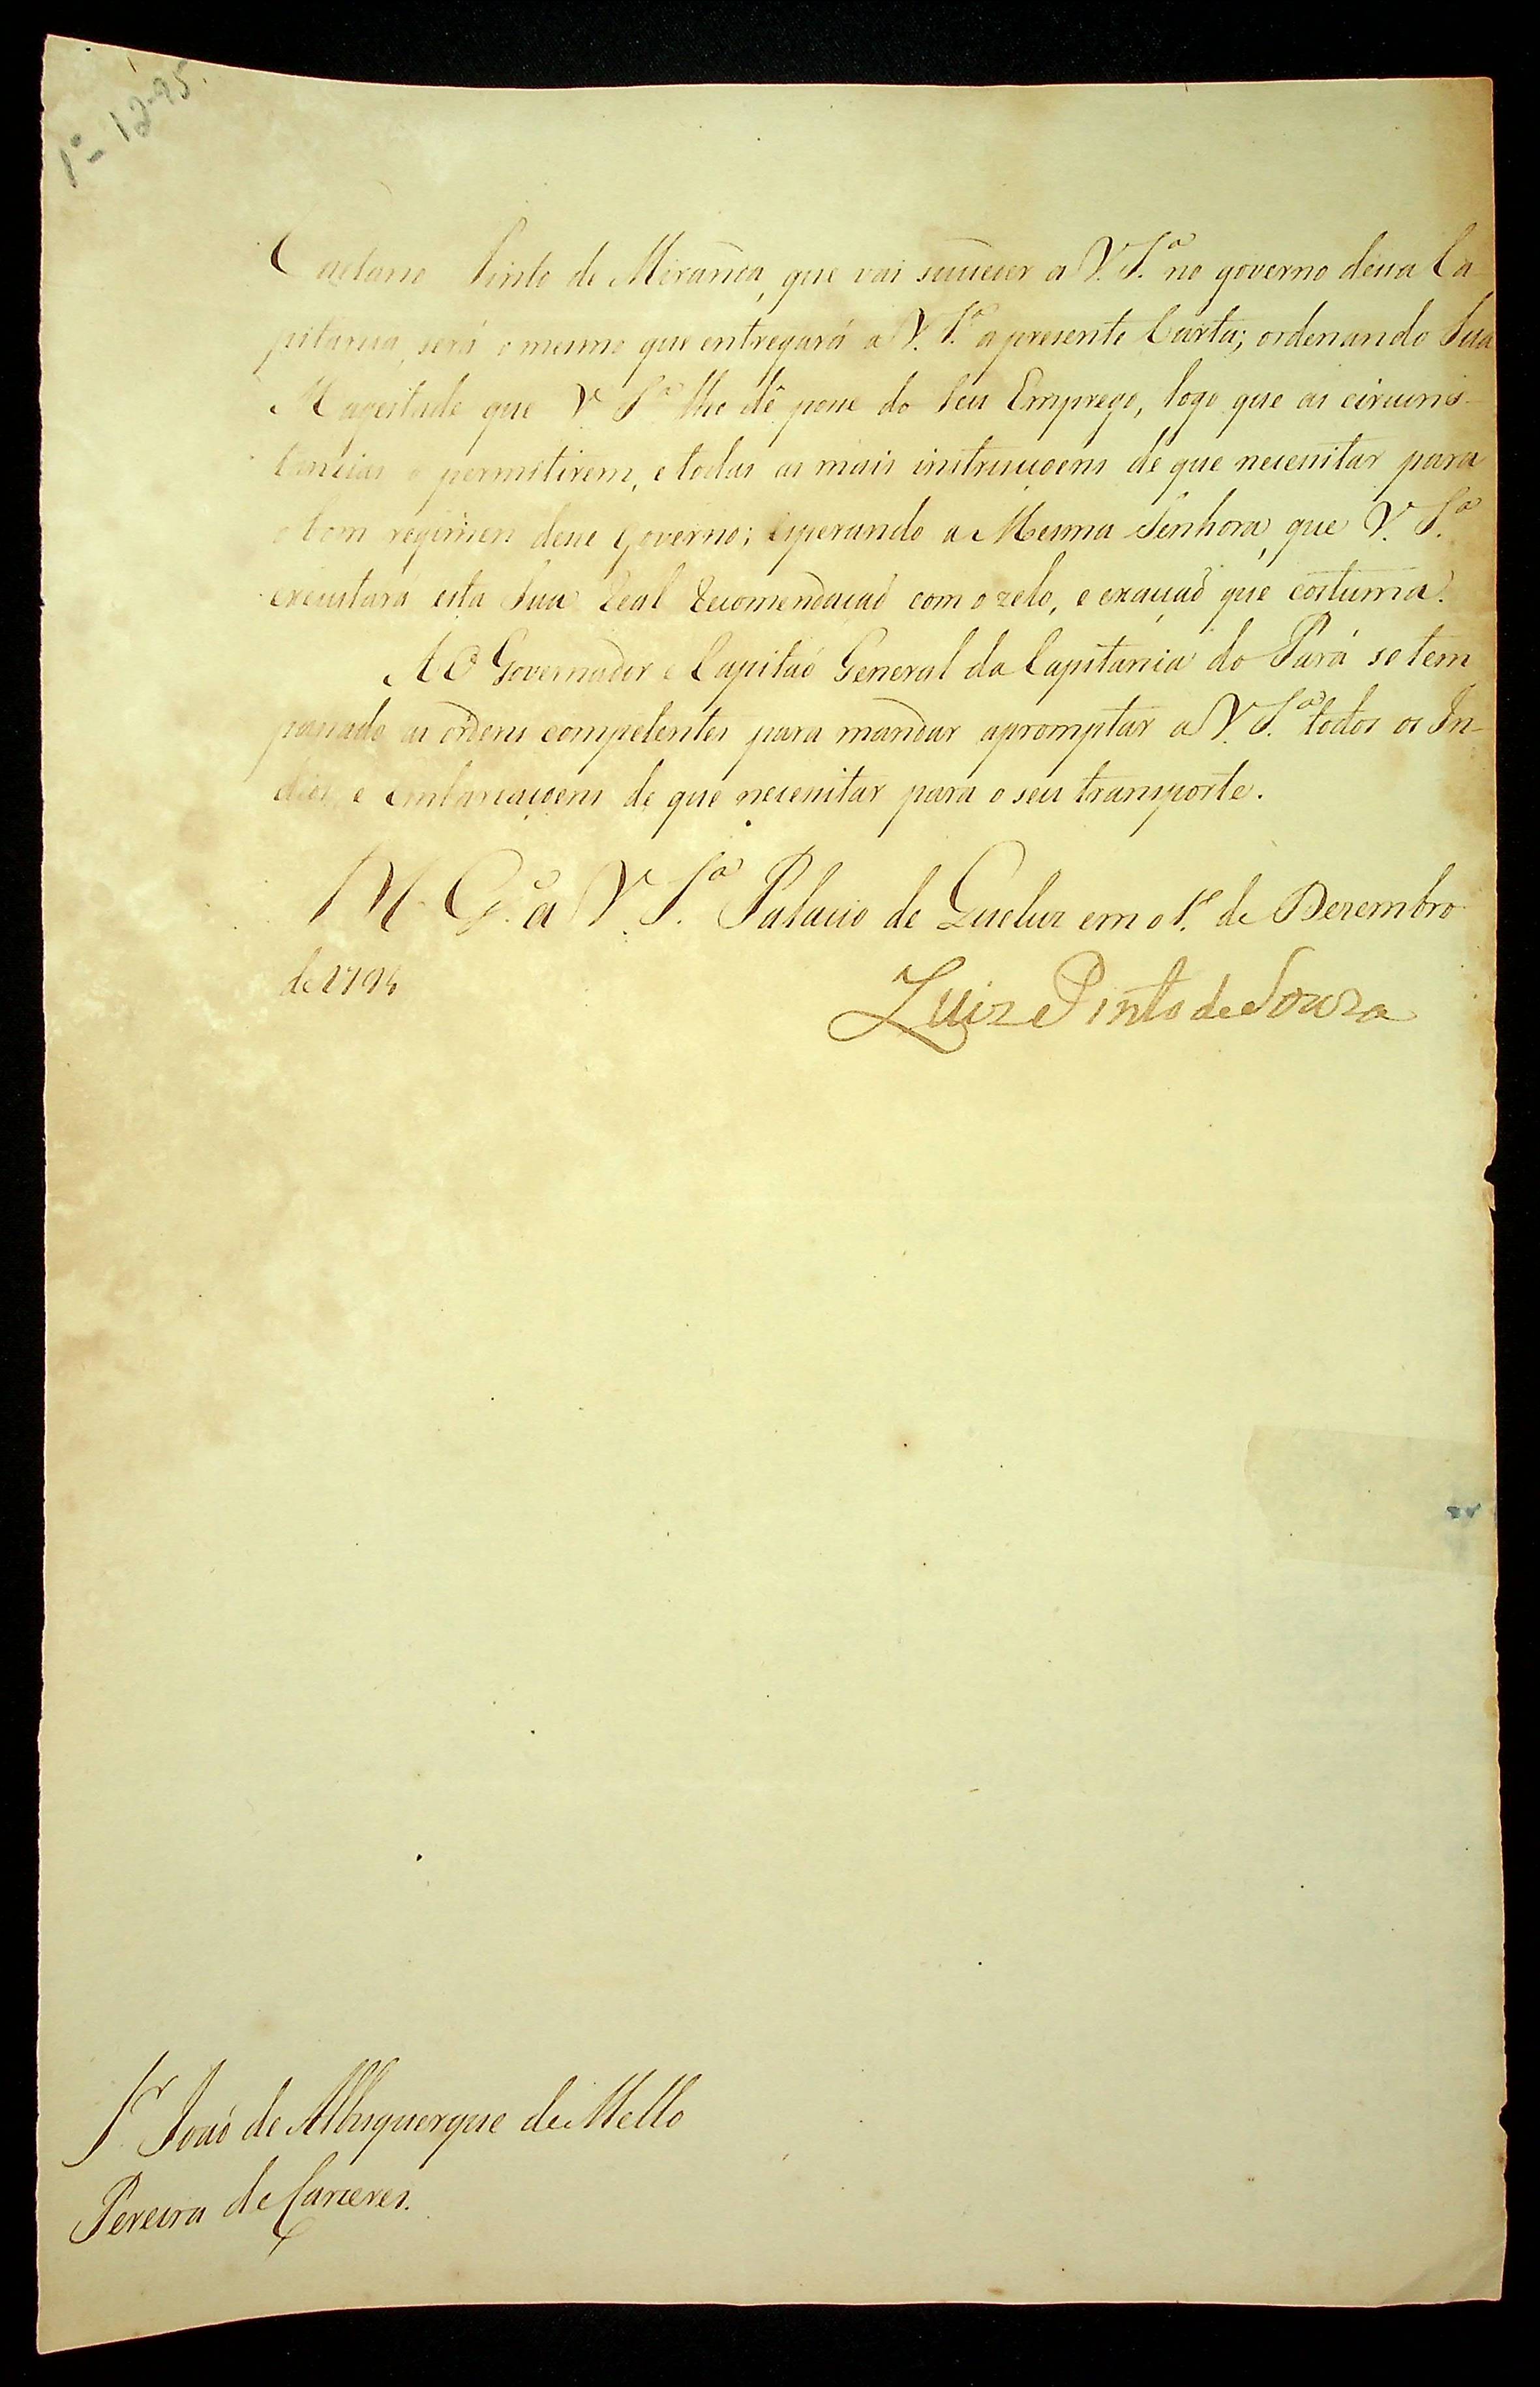 1º - 12-95.
Caetano Pinto de Miranda, que vai succeder a V. S.ª no governo dessa Ca-
pitania, será o mesmo que entregará a V. S.ª a presente Carta; ordenando Sua
Magestade que V. S.ª lhe dê posse do seu Emprego, logo que as circuns-
tancias o permitirem, e todas as mais instrucçoens de que necessitar para
o bom regimen desse Governo; esperando a Mesma Senhora, que V. S.ª
executará esta Sua Real Recomendaçaõ com o zelo, e exacçaõ que costuma.
Ao Governador e Capitaõ General da Capitania do Pará se tem
passado as ordens competentes para mandar apromptar a V. S.ª todos os In-
dios, e embarcaçoens de que necessitar para o seu transporte.
G.e a V. S.ª Palacio de Queluz em o 1.º de Dezembro
de 179
Luiz Pinto de Souza
S.r Joaõ de Albuquerque de Mello
Pereira de Carceres.